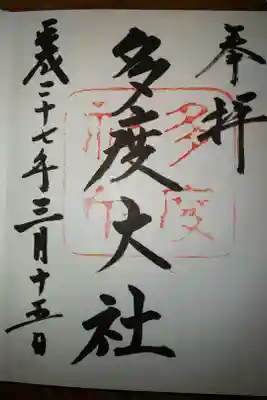 奉拝
多度大社
平成二十七年三月十五日
多度
神社